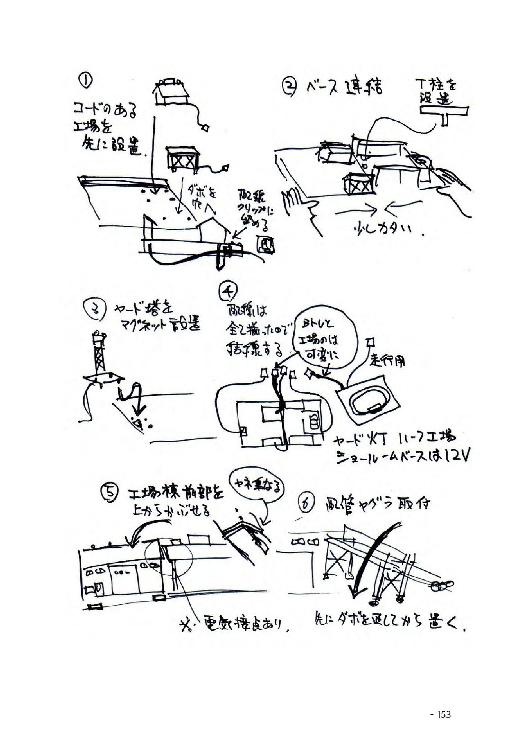 ①
コードのある
工場を
先に設置.
ダボを
穴へ
配線
クリップに
留める
② ベース連結
T柱を
設置
少しカタい.
③ ヤード塔を
マグネット設置
④
配線は
全て揃ったので
結線する
工場のは
可変に
走行用
ヤード灯 ハーフ工場
ショールームベースは12V
⑤ 工場棟前部を
上からかぶせる
ヤネ重なる
※. 電気接点あり.
⑥ 風管ヤグラ取付
先にダボを通してから置く.
- 153